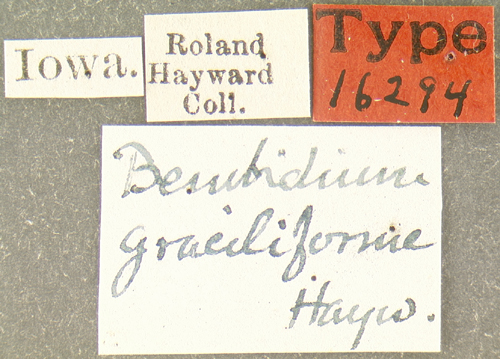 Iowa.
Roland
Hayward
Coll.
Type
16294
Bembidium
graciliforme
Hayw.